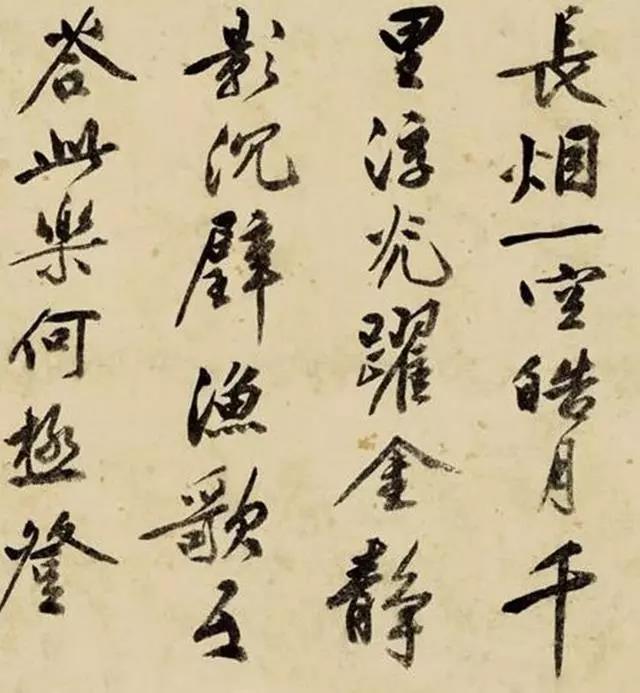 長烟一空皓月千
里浮光躍金静
影沉璧漁歌互
荅此樂何極登